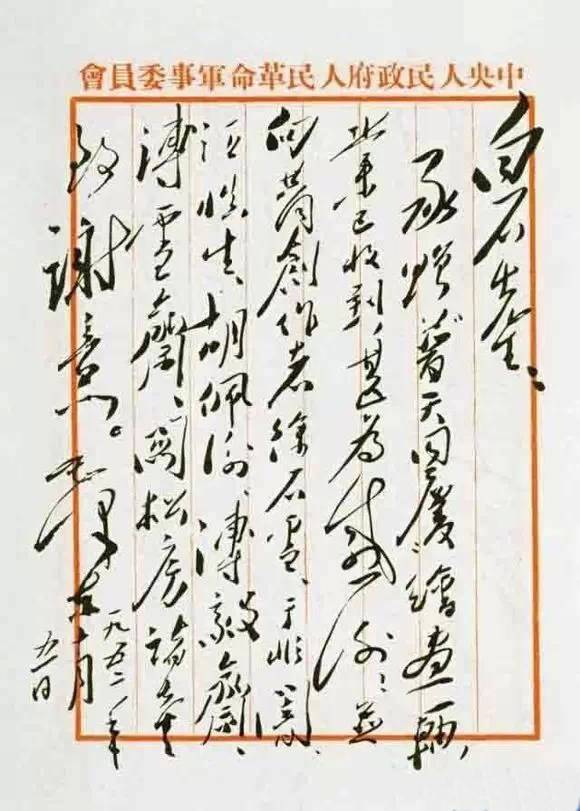 中央人民政府人民革命軍事委員會
白石先生：
承贈“普天同慶”繪畫一軸，
業已收到，甚為感謝！並
向共同創作者徐石雪、于非闇、
汪慎生、胡佩衡、溥毅齋、
溥雪齋、關松房諸先生
致謝意。毛澤東
一九五二年
十月
五日